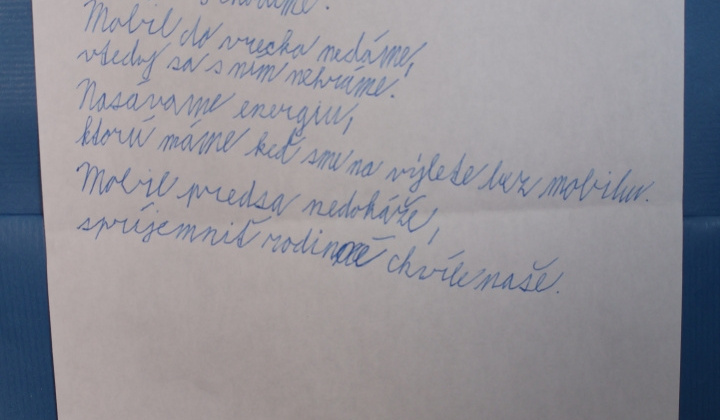 Mobil do vrecka nedáme,
vtedy sa s ním nehráme.
Nasávame energiu,
ktorú máme keď sme na výlete bez mobilu.
Mobil predsa nedokáže,
spríjemniť rodinné chvíle naše.